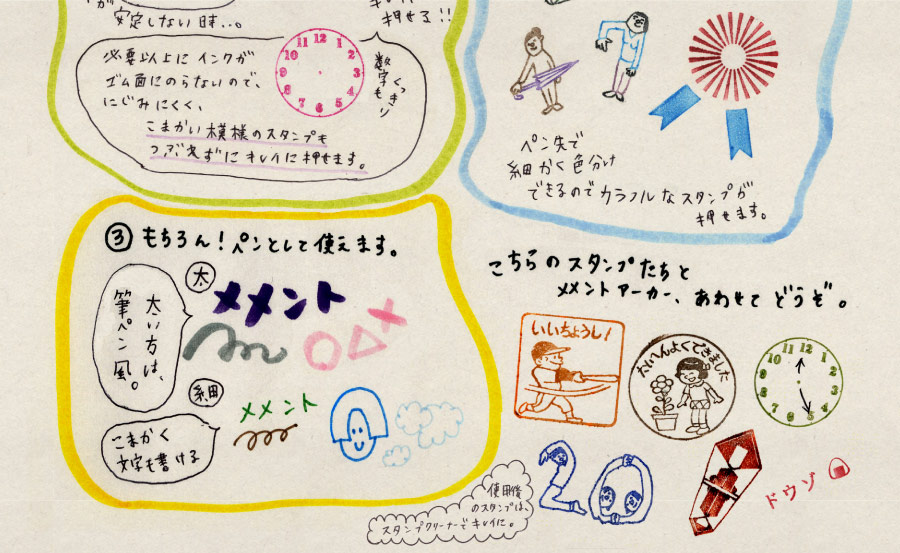 が
安定しない時…。
押せる!!
必要以上にインクが
ゴム面にのらないので、
にじみにくく、
こまかい模様のスタンプも
つぶさずにキレイに押せます。
12
1
2
3
4
5
6
7
8
9
10
11
数字も
くっきり
ペン先で
細かく色分け
できるのでカラフルなスタンプが
押せます。
③ もちろん!ペンとして使えます。
太
太い方は、
筆ペン風。
メメント
細
メメント
こまかく
文字も書ける
こちらのスタンプたちと
メメントマーカー、あわせてどうぞ。
いいちょうし!
たいへんよくできました
12
1
2
3
4
5
6
7
8
9
10
11
20
ドウゾ
使用後
のスタンプは、
スタンプクリーナーでキレイに。